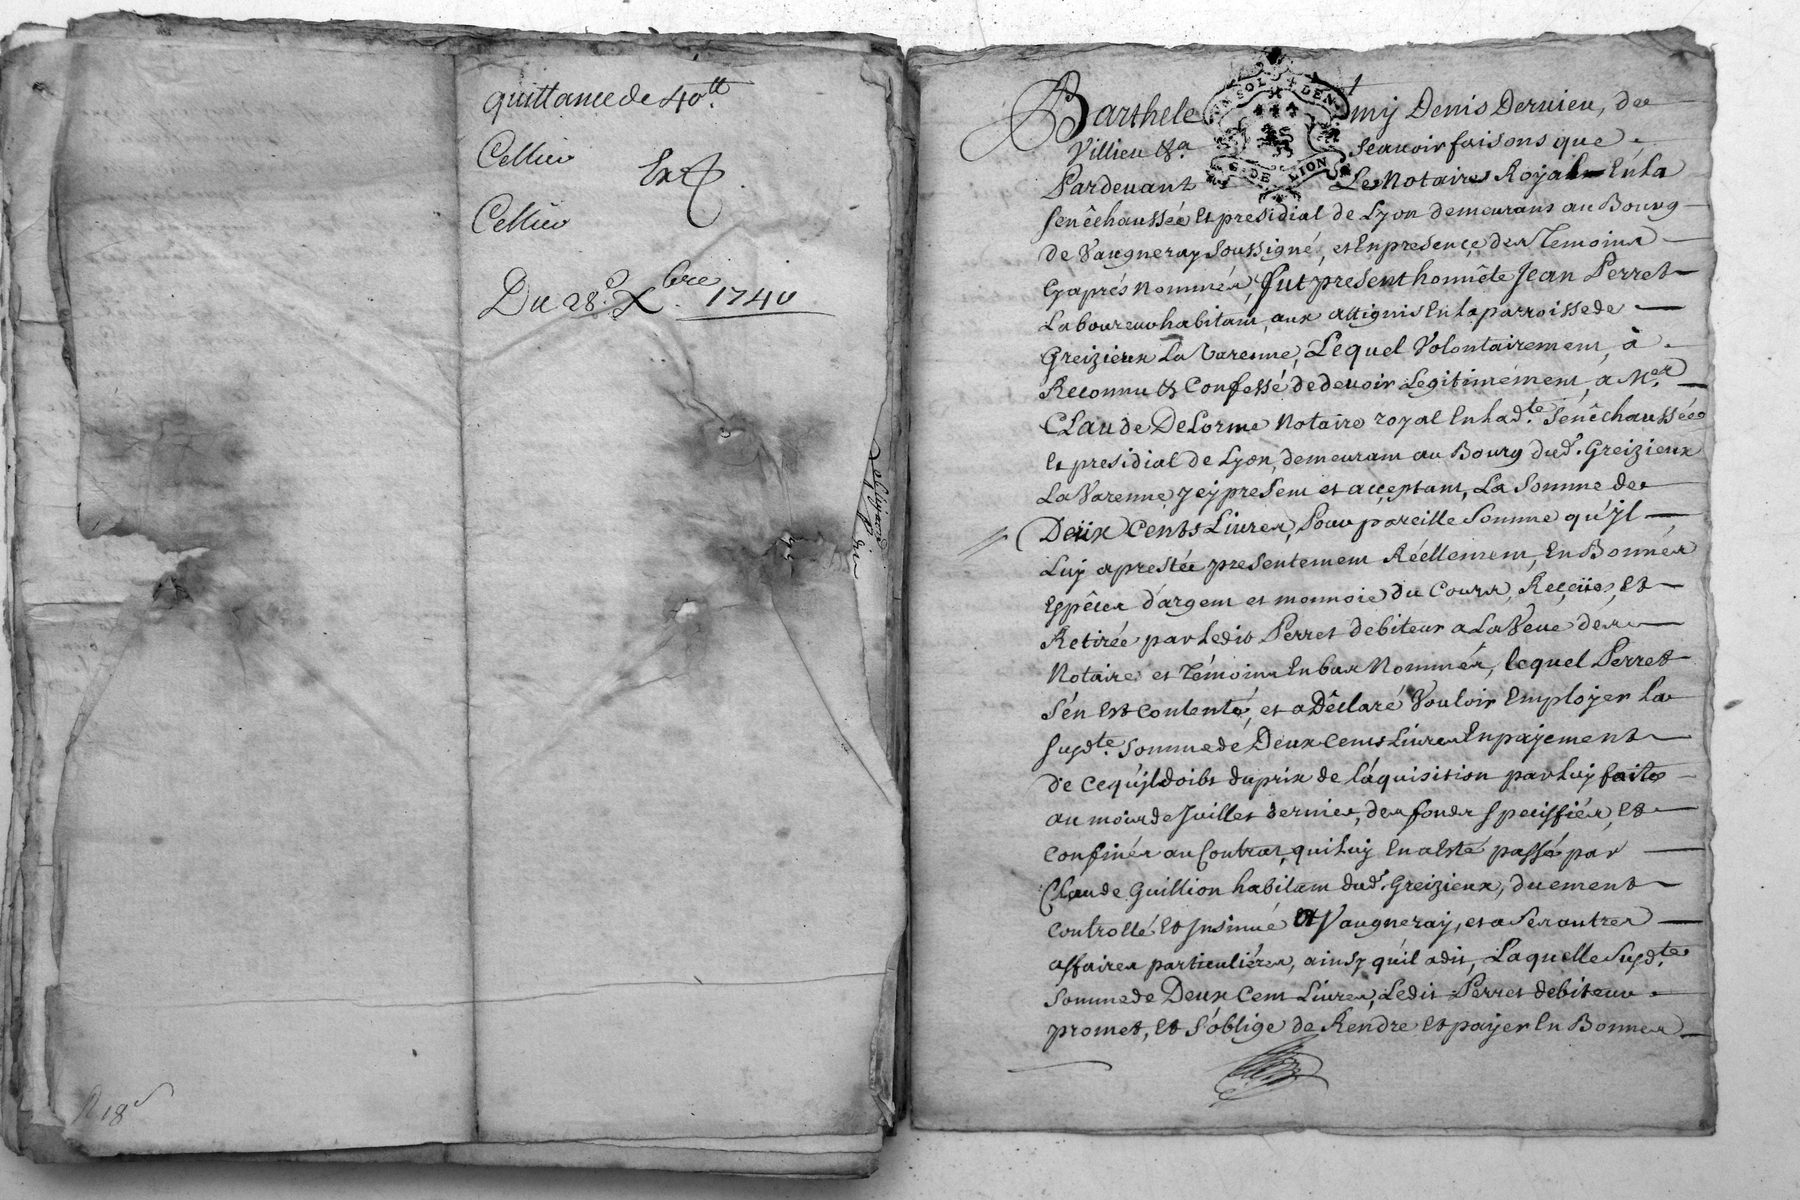 quittance de 40.tt
Cellier
Ext
Cellier
Du 28.e Xbre. 1740
R 18
Barthelemy Denis Dervieu, de
UN SOL 4 DEN
G. DE LION
Villieu &a Scavoir faisons que
Pardevant Le Notaire Royal En La
senêchaussée Et presidial de Lyon demeurans au Bourg
de Vaugneray soussigné, et En presence des Temoins
Cyaprés Nommés, fut present honnête Jean Perret
Laboureur habitant, aux attignis En la parroisse de
Greizieux La Varenne, Lequel Volontairement, à
Reconnu & Confessé de devoir Legitimément, a Mer.
Claude Delorme Notaire royal En lad.te Sénêchaussée
Et presidial de Lyon, demeurant au Bourg dud.t Greizieux
La Varenne, Jcy present et acceptant, La Somme de
Deüx Cents Livres, Pour pareille Somme qu'Jl
Luy a prestée presentement Réellement, En Bonnes
Espêces d'argent et monnoie du Cours, Reçüe, Et
Retirée par Ledit Perret debiteur a La Veüe des
Notaire et Témoins En bas Nommés, lequel Perret
s'en Est contenté, et a Dêclaré Vouloir Employer La
susd.te Somme de Deux Cents Livres En payement
de ce qu'jl doibt du prix de l'áquisition par Luy faite
au mois de Juillet dernier, des fonds speciffiés, Et
Confinés au Contrat, qui Luy En a Esté passé par
Claude Guillion habitant dud.t Greizieux, duement
Controllé Et Jnsinué At Vaugneray, et a Ses autres
affaires particuliéres, ainsy qu'il a dit, Laquelle Susd.te
Somme de Deux Cent Livres, Ledit Perret debiteur
promet, Et S'oblige de Rendre Et payer En Bonnes